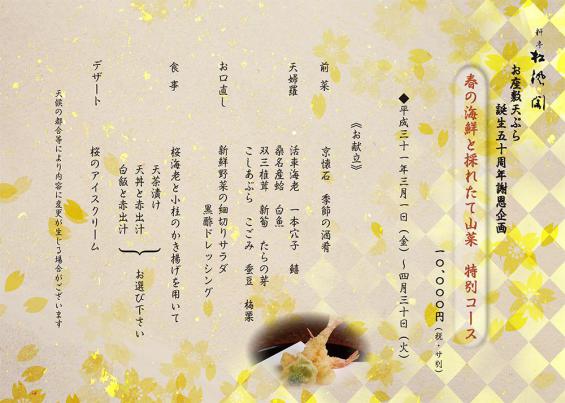 料亭 松楓閣
お座敷天ぷら
誕生五十周年謝恩企画
春の海鮮と採れたて山菜 特別コース
一〇,〇〇〇円(税・サ別)
◆平成三十一年三月一日(金)~四月三十日(火)
《お献立》
前菜 京懐石 季節の酒肴
天婦羅 活車海老 一本穴子 鱚
桑名産蛤 白魚
双三椎茸 新筍 たらの芽
こしあぶら こごみ 蚕豆
お口直し 新鮮野菜の細切りサラダ
黒酢ドレッシング
食事 桜海老と小柱のかき揚げを用いて
天茶漬け
天丼と赤出汁
白飯と赤出汁
お選び下さい
デザート 桜のアイスクリーム
天候の都合等により内容に変更が生じる場合がございます